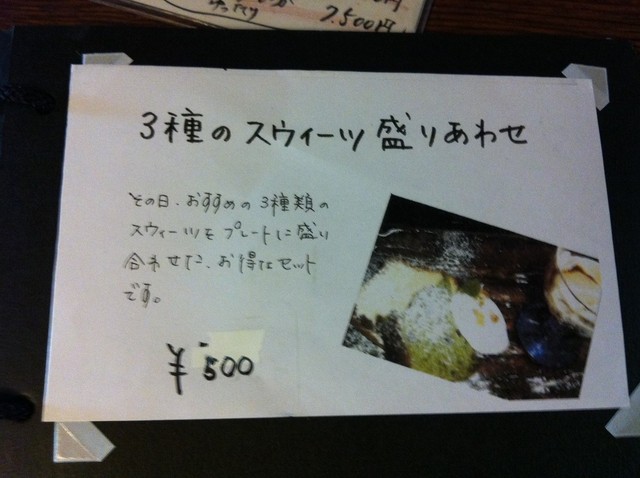 7,500円
3種のスウィーツ盛りあわせ
その日、おすすめの3種類の
スウィーツをプレートに盛り
合わせた、お得なセット
です。
¥500